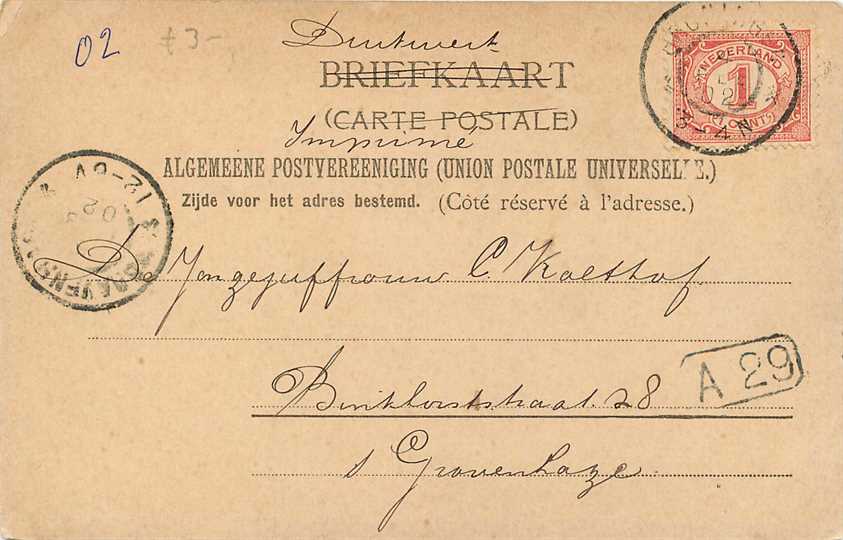 02 £3-
Drukwerk
BRIEFKAART
(CARTE POSTALE)
Imprimé
ALGEMEENE POSTVEREENIGING (UNION POSTALE UNIVERSELLE.)
Zijde voor het adres bestemd. (Côté réservé à l'adresse.)
NEDERLAND
1
CENT
3-4 N
12-6V
02
De Jongejuffrouw C. Kolthof.
A 29
Binkhorststraat. 28
s Gravenhage.